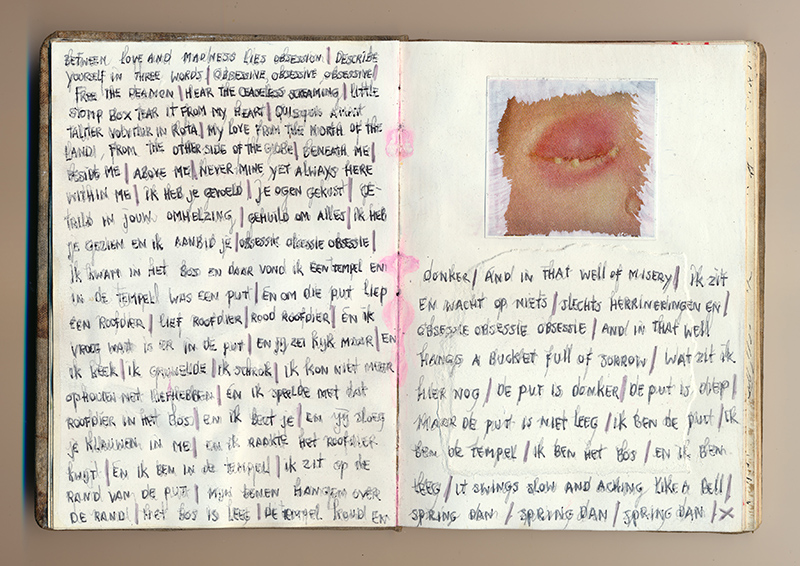 BETWEEN LOVE AND MADNESS LIES OBSESSION / DESCRIBE
YOURSELF IN THREE WORDS / OBSESSIVE OBSESSIVE OBSESSIVE /
FREE THE DEAMON / HEAR THE CEASELESS SCREAMING / LITTLE
STOMP BOX TEAR IT FROM MY HEART / QUISQUIS AMAT
TALITER VOLVITUR IN ROTA / MY LOVE FROM THE NORTH OF THE
LAND / FROM THE OTHER SIDE OF THE GLOBE / BENEATH ME /
BESIDE ME / ABOVE ME / NEVER MINE YET ALWAYS HERE
WITHIN ME / IK HEB JE GEVOELD / JE OGEN GEKUST / GE-
TRILD IN JOUW OMHELZING / GEHUILD OM ALLES / IK HEB
JE GEZIEN EN IK AANBID JE / OBSESSIE OBSESSIE OBSESSIE /
IK KWAM IN HET BOS EN DAAR VOND IK EEN TEMPEL EN
IN DE TEMPEL WAS EEN PUT / EN OM DIE PUT LIEP
EEN ROOFDIER / LIEF ROOFDIER / ROOD ROOFDIER / EN IK
VROEG WAT IS ER IN DE PUT / EN JIJ ZEI KIJK MAAR / EN
IK KEEK / IK GRUWELDE / IK SCHROK / IK KON NIET MEER
OPHOUDEN MET LIEFHEBBEN / EN IK SPEELDE MET DAT
ROOFDIER IN HET BOS / EN IK BEET JE / EN JIJ SLOEG
JE KLAUWEN IN ME / EN IK RAAKTE HET ROOFDIER
KWIJT / EN IK BEN IN DE TEMPEL / IK ZIT OP DE
RAND VAN DE PUT / MIJN BENEN HANGEN OVER
DE RAND / HET BOS IS LEEG / DE TEMPEL KOUD EN
DONKER / AND IN THAT WELL OF MISERY / IK ZIT
EN WACHT OP NIETS / SLECHTS HERRINERINGEN EN /
OBSESSIE OBSESSIE OBSESSIE / AND IN THAT WELL
HANGS A BUCKET FULL OF SORROW / WAT ZIT IK
HIER NOG / DE PUT IS DONKER / DE PUT IS DIEP /
MAAR DE PUT IS NIET LEEG / IK BEN DE PUT / IK
BEN DE TEMPEL / IK BEN HET BOS / EN IK BEN
LEEG / IT SWINGS SLOW AND ACHING LIKE A BELL /
SPRING DAN / SPRING DAN / SPRING DAN / X